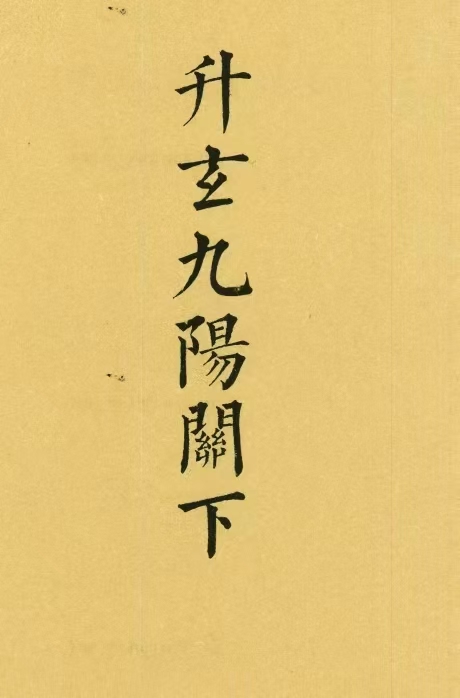 升玄九陽關下